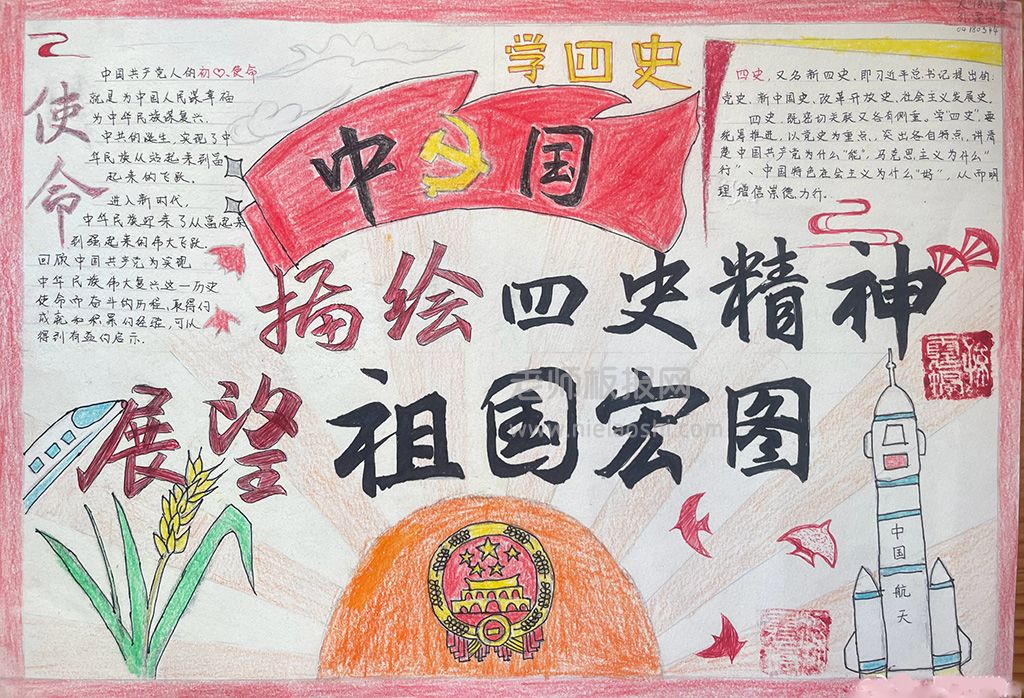 学四史
中国
描绘四史精神
展望祖国宏图
使命
中国共产党人的初心、使命
就是为中国人民谋幸福
为中华民族谋复兴.
中共的诞生,实现了中
华民族从站起来到富
起来的飞跃.
进入新时代,
中华民族迎来了从富起来
到强起来的伟大飞跃.
回顾中国共产党为实现
中华民族伟大复兴这一历史
使命而奋斗的历程,取得的
成就和积累的经验,可以
得到有益的启示.
四史,又名新四史,即习近平总书记提出的:
党史、新中国史、改革开放史、社会主义发展史.
四史,既密切关联又各有侧重,学"四史"要
统筹推进,以党史为重点,突出各自特点,讲清
楚中国共产党为什么"能",马克思主义为什么"
行"、中国特色社会主义为什么"好",从而明
理、增信崇德力行.
中国航天
老师板报网